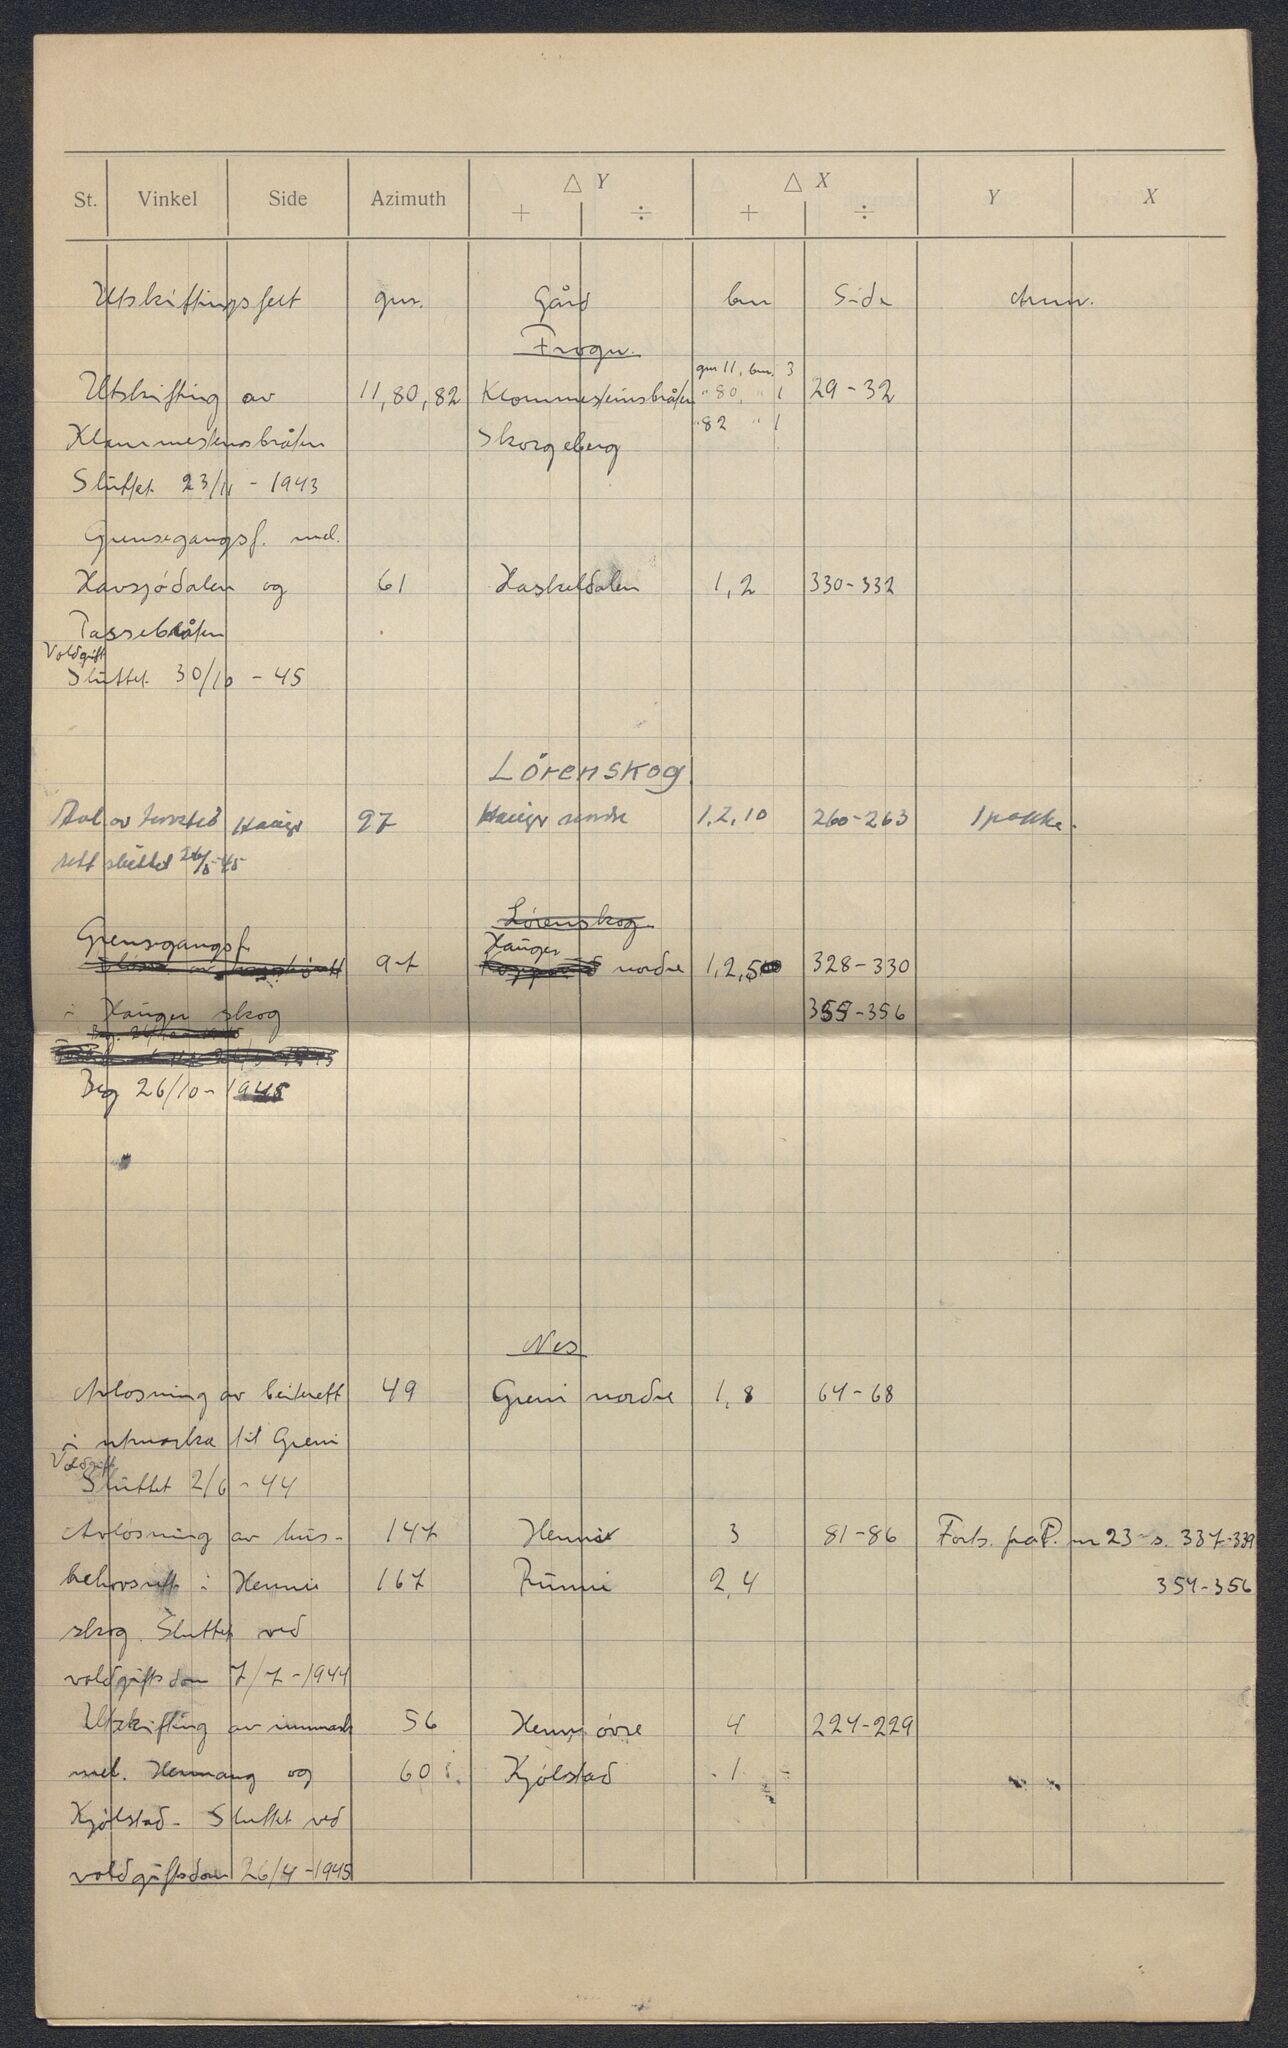 St. Vinkel Side Azimuth △ Y + ÷ △ X + ÷ Y X
Utskiftingsfelt gnr. Gård bnr Side Anm.
Frogn.
gnr 11, bnr. 3
Utskifting av 11,80,82 Klommesteinsbråten "80, " 1 29-32
Klommesteinsbråten Skorgeberg "82 " 1
Sluttet 23/11 - 1943
Grensegangsf. mel.
Havsjødalen og 61 Haskeldalen 1,2 330-332
Tassebråten
Voldgift
Sluttet 30/10 - 45
Lörenskog
av Hauger 97 Hauger nordre 1,2,10 260-263 1 pakke.
rett sluttet 26/5-45
Lørenskog
Grensegangsf. Hauger
97 nordre 1,2,5 328-330
i Hauger skog 355-356
Beg 26/10-1945
Nes
Avløsning av beiterett 49 Greni nordre 1,8 64-68
i utmarka til Greni
Voldgift
Sluttet 2/6 - 44
Avløsning av hus- 147 Hennie 3 81-86 Forts. på P. nr 23 s. 337-339
behovsrett i Hennie 167 Runni 2,4 354-356
skog. Sluttet ved
voldgiftsdom 7/7-1944
Utskifting av innmark 56 Henni övre 4 224-229
mel. Hennaug og 60 Kjölstad 1
Kjølstad - Sluttet ved
voldgiftsdom 26/4-1945